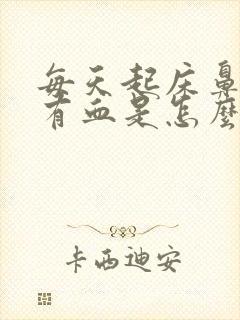 每天起床鼻
有血是怎麼
卡西迪安